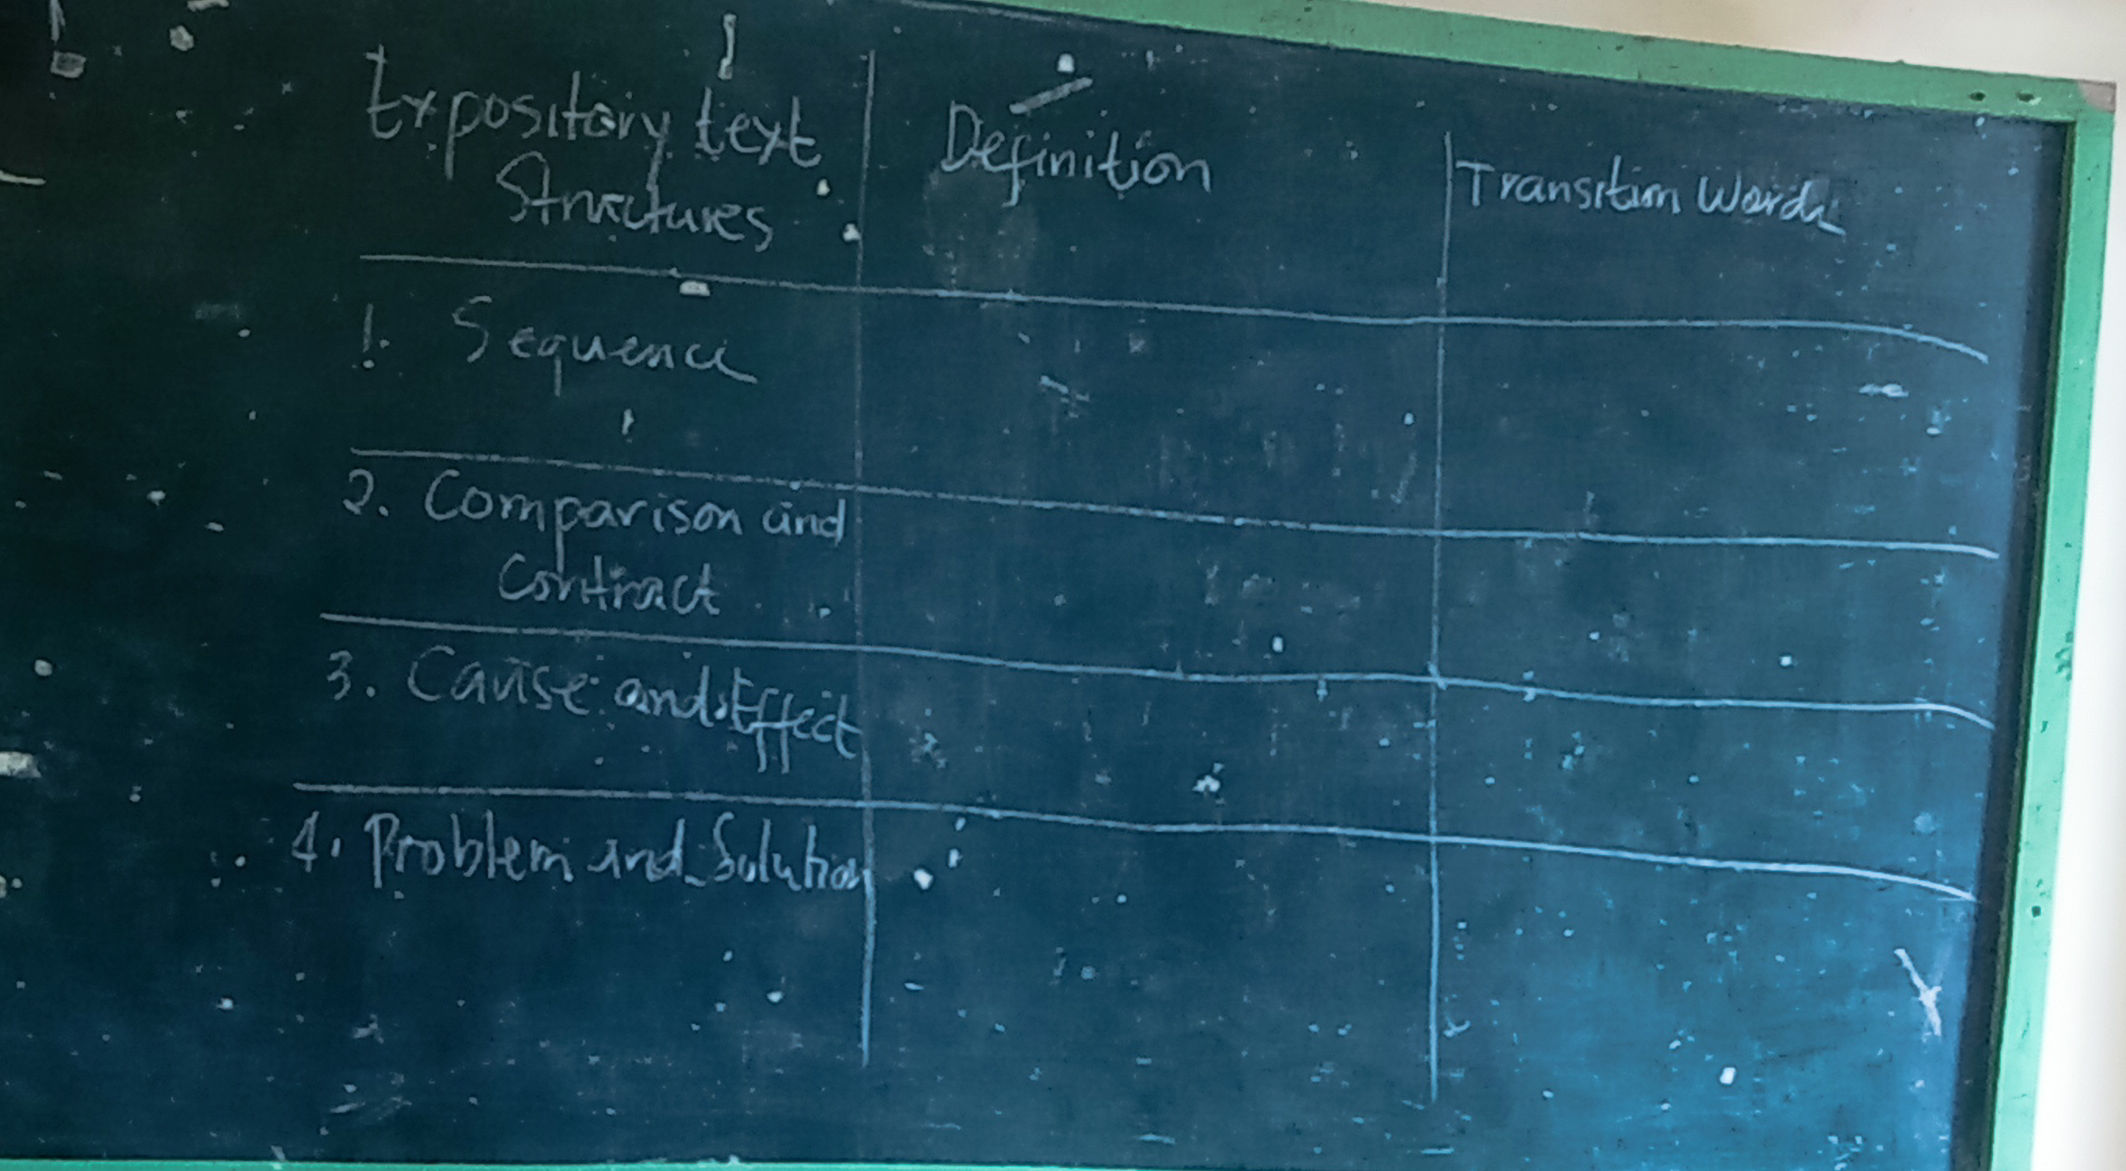 Expository text
Structures
Definition
Transition Words
1. Sequence
2. Comparison and
Contract
3. Cause and Effect
4. Problem and Solution